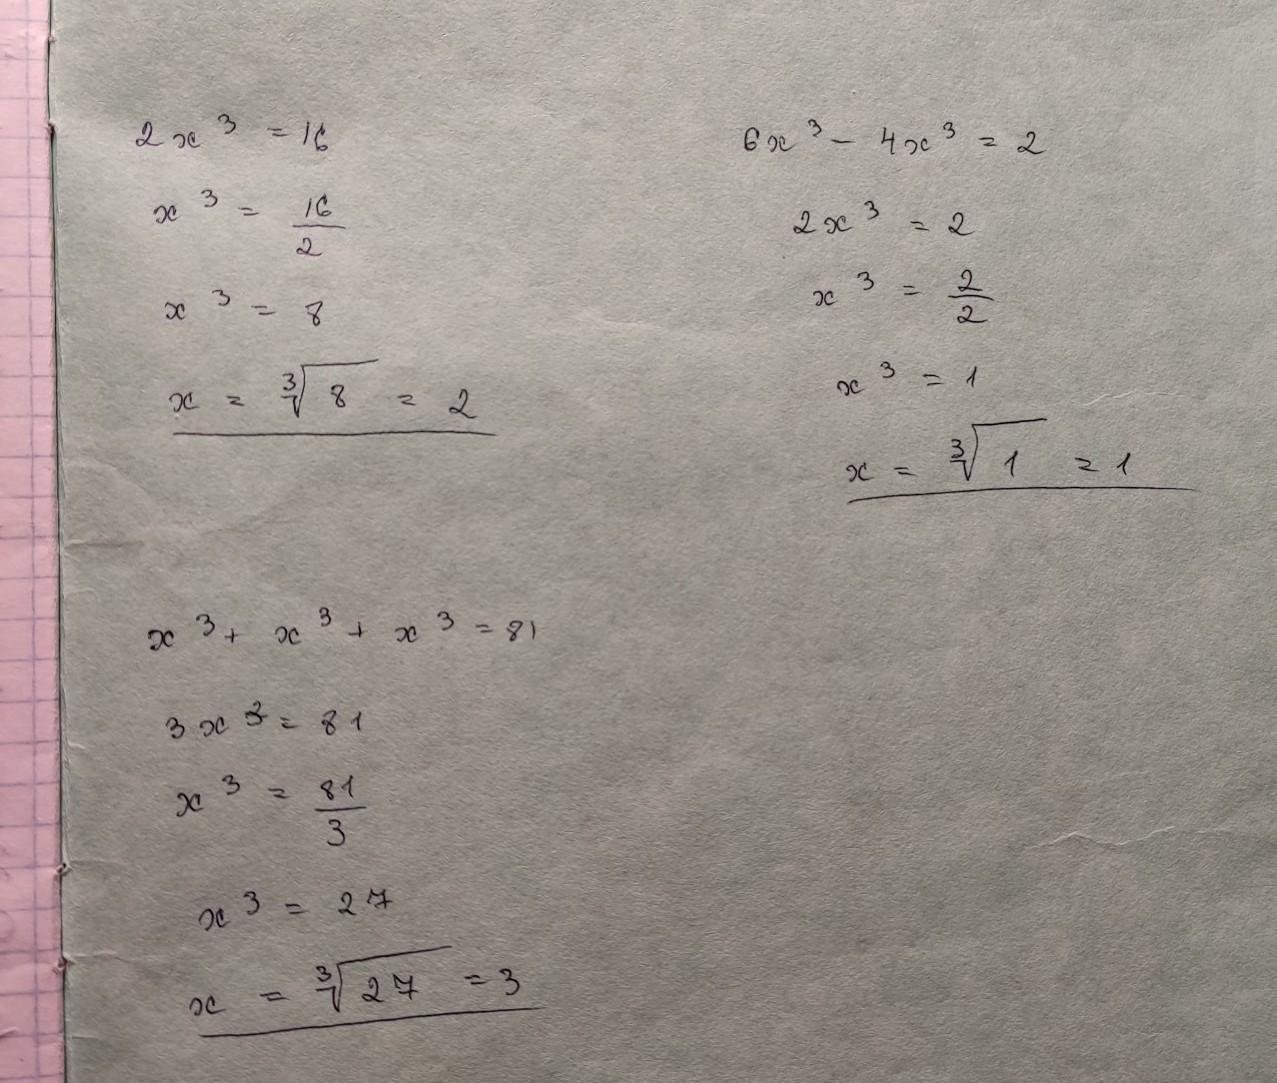 2x³ = 16
x³ = 16/2
x³ = 8
x = ∛8 = 2
6x³ - 4x³ = 2
2x³ = 2
x³ = 2/2
x³ = 1
x = ∛1 = 1
x³ + x³ + x³ = 81
3x³ = 81
x³ = 81/3
x³ = 27
x = ∛27 = 3